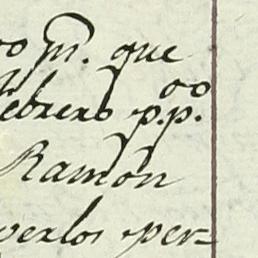 oo m. que
ebrero p.p.
Ramon
verlos per=